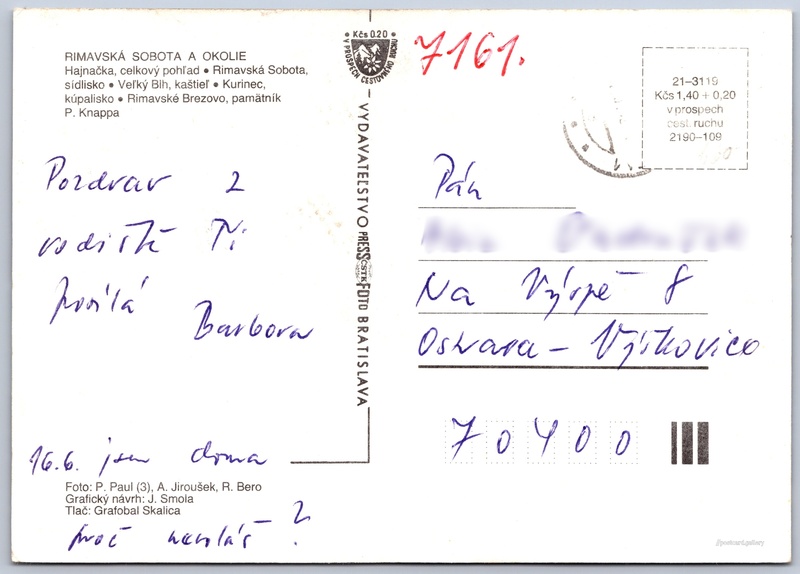 RIMAVSKÁ SOBOTA A OKOLIE
Hajnačka, celkový pohľad • Rimavská Sobota,
sídlisko • Veľký Blh, kaštieľ • Kurinec,
kúpalisko • Rimavské Brezovo, pamätník
P. Knappa
Kčs 0.20
V PROSPECH CESTOVNÉHO RUCHU
7161.
21–3119
Kčs 1,40 + 0,20
v prospech
cest. ruchu
2190–109
VYDAVATEĽSTVO PRESSFOTO BRATISLAVA
ČSTK
Pozdrav z
vodiště Ti
posílá
Barbora
16.6. jsem doma
Foto: P. Paul (3), A. Jiroušek, R. Bero
Grafický návrh: J. Smola
Tlač: Grafobal Skalica
proč nevoláš?
Pán
Na Výspě 8
Ostrava – Výškovice
70400